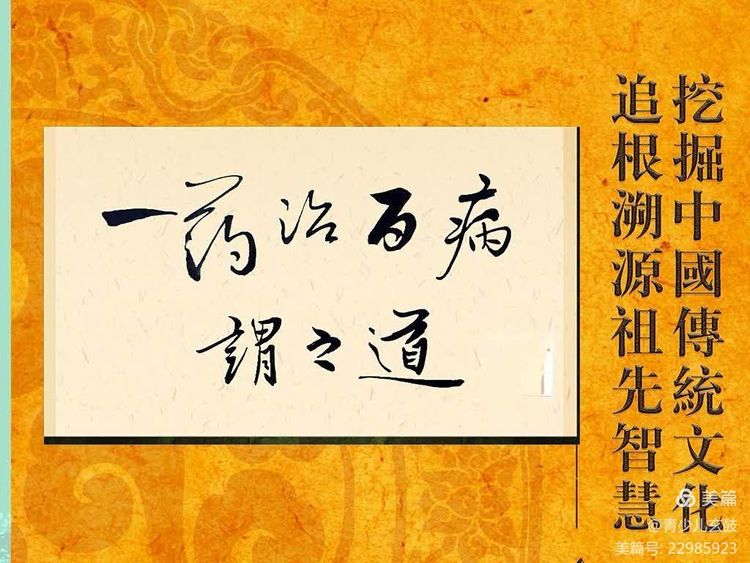 一药治百病
謂之道
挖掘中國傳統文化
追根溯源祖先智慧
美篇
@青少儿玄鼓
美篇号: 22985923